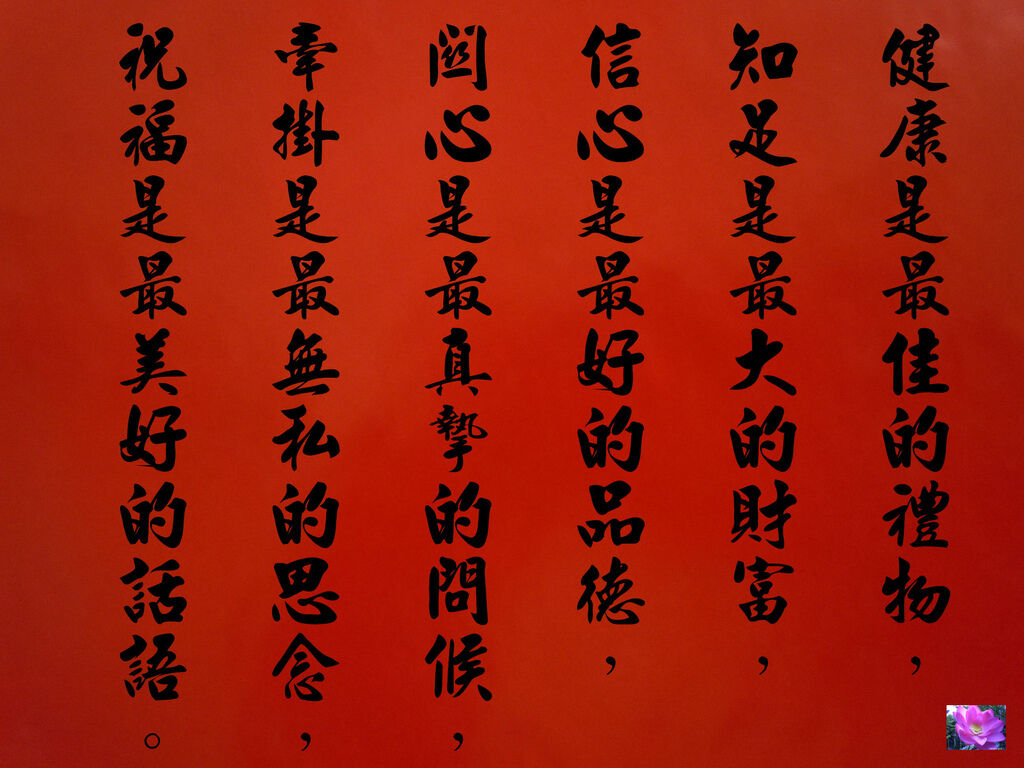 健康是最佳的禮物，
知足是最大的財富，
信心是最好的品德，
關心是最真摯的問候，
牽掛是最無私的思念，
祝福是最美好的話語。